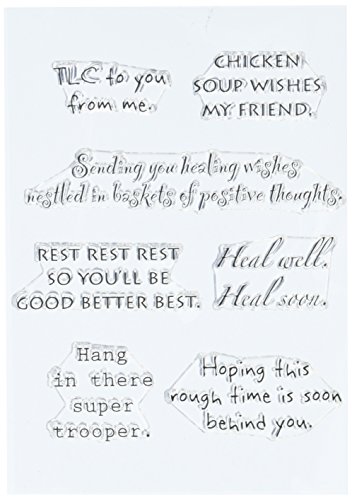 TLC to you
from me.
CHICKEN
SOUP WISHES
MY FRIEND.
Sending you healing wishes
nestled in baskets of positive thoughts.
REST REST REST
SO YOU'LL BE
GOOD BETTER BEST.
Heal well.
Heal soon.
Hang
in there
super
trooper.
Hoping this
rough time is soon
behind you.